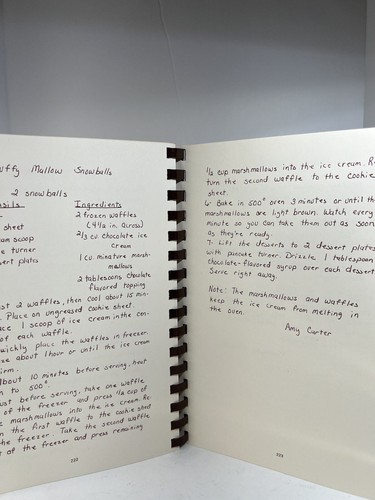 uffy Mallow Snowballs
2 snowballs
nsils
sheet
am scoop
e turner
ert plates
Ingredients
2 frozen waffles
(4½ in. across)
2/3 cu. chocolate ice
cream
1 cu. minature marsh-
mallows
2 tablespoons choulate
flavored topping
st 2 waffles, then cool about 15 min-
. Place on ungreased cookie sheet.
ace 1 scoop of ice cream in the cen-
of each waffle.
uickly place the waffles in freezer.
ze about 1 hour or until the ice cream
irm.
About 10 minutes before serving, heat
n to 500°.
ust before serving, take one waffle
of the freezer and press ½ cup of
e marshmallows into the ice cream. Re-
n the first waffle to the cookie sheet
the freezer. Take the second waffle
t of the freezer and press remaining
222
½ cup marshmallows into the ice cream. Re-
turn the second waffle to the cookie
sheet.
6. Bake in 500° oven 3 minutes or until the
marshmallows are light brown. Watch every
minute so you can take them out as soon
as they're ready.
7. Lift the desserts to 2 dessert plates
with pancake turner. Drizzle 1 tablespoon
chocolate-flavored syrup over each dessert
Serve right away.
Note: The marshmallows and waffles
keep the ice cream from melting in
the oven.
Amy Carter
223